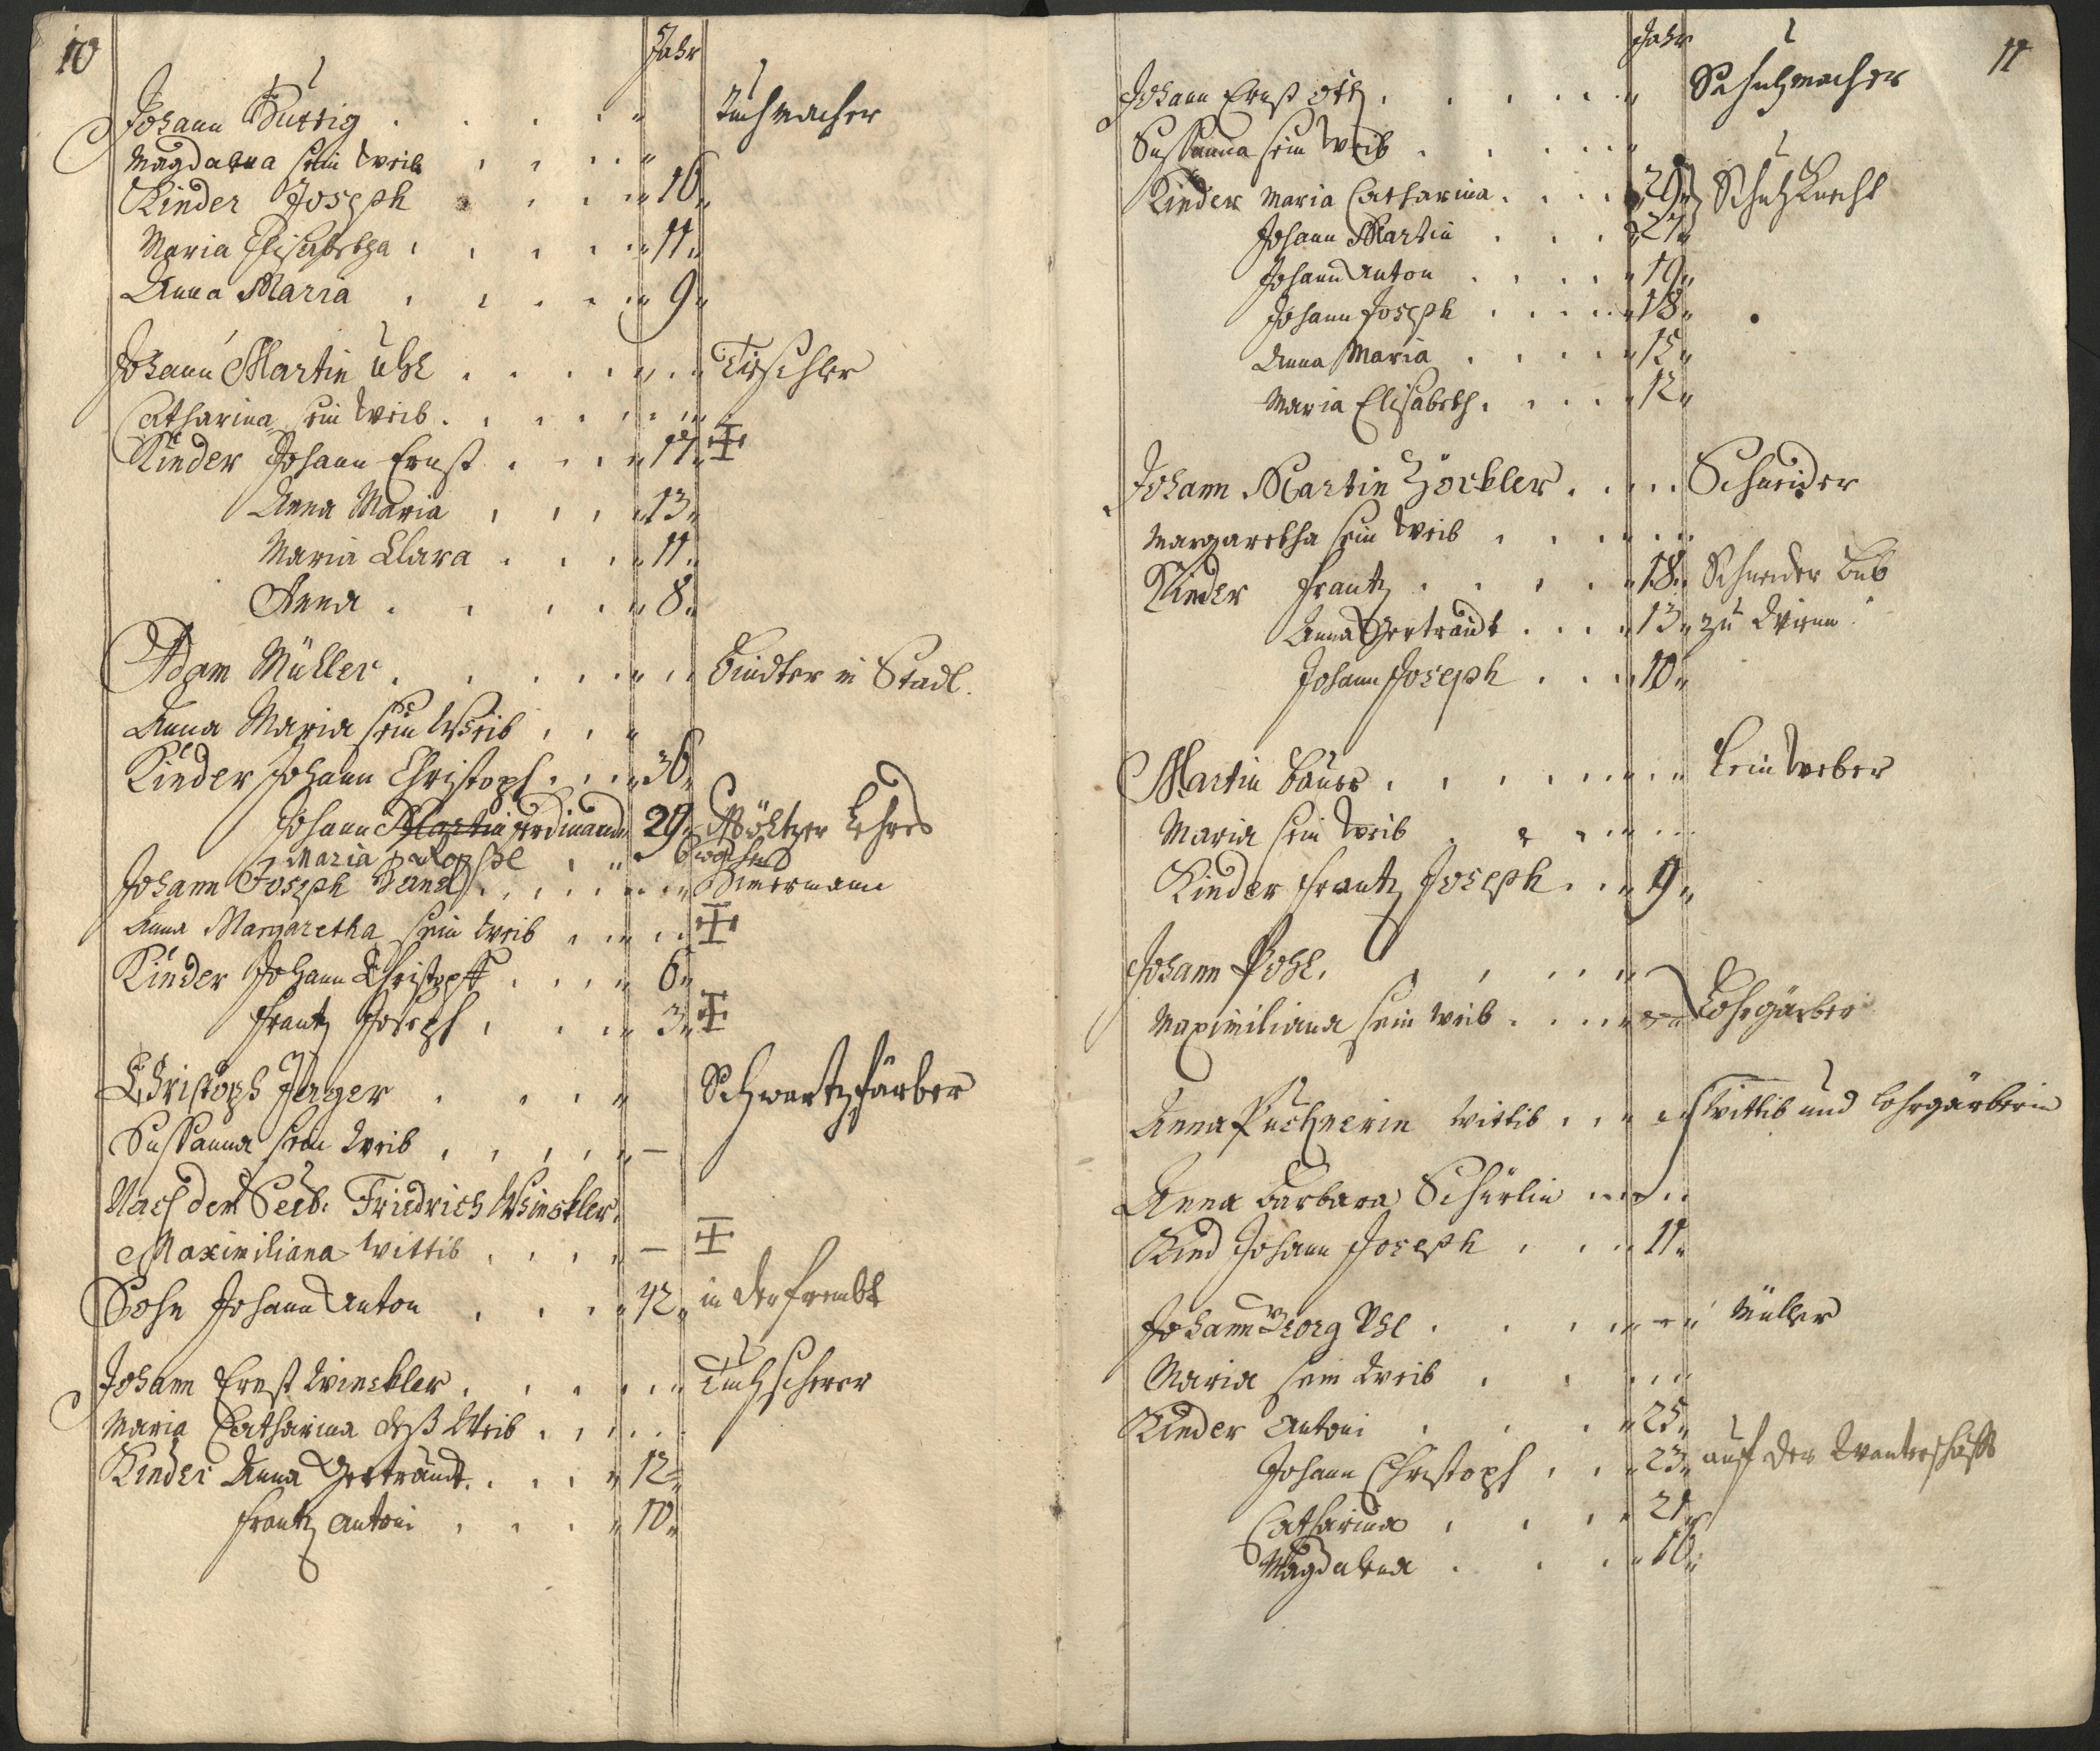 10
Jahr
Johann Buttig Tuchmacher
Magdalena sein Weib
Kinder Joseph 16
Maria Elisabetha 11
Anna Maria 9
Johann Martin Uhl Tischler
Catharina sein Weib
Kinder Johann Ernst 17
Anna Maria 13
Maria Clara 11
Anna 8
Adam Müller Bindter in Stadl.
Anna Maria sein Weib
Kinder Johann Christoph 36
Johann Martin Ferdinand 29
Maria
Johann Joseph
Anna Margaretha sein Weib
Kinder Johann Christoph 6
Frantz Joseph 3
Christoph Jäger Schwartzfärber
Sussanna sein Weib
Nach dem Seel. Friedrich Winckler
Maximiliana Wittib
Sohn Johann Anton 42 in der frembt
Johann Ernst Winckler Tuchscherer
Maria Catharina deß Weib
Kinder Anna Gertraudt 12
Frantz Antoni 10
11
Jahr
Johann Ernst Ott Schuhmacher
Sussanna sein Weib
Kinder Maria Catharina 29 Schuhknecht
Johann Martin 21
Johann Anton 19
Johann Joseph 18
Anna Maria 15
Maria Elisabeth 12
Johann Martin Höckler Schneider
Margaretha sein Weib
Kinder Frantz 18 Schneider Bub
Anna Gertraudt 13 zu Wienn
Johann Joseph 10
Martin Bauer Leinweber
Maria sein Weib
Kinder Frantz Joseph 9
Johann Pohl
Maximiliana sein Weib Lohgärber
Anna Puchnerin Wittib Wittib und Lohgärberin
Anna Barbara Schürlin
Kind Johann Joseph 11
Johann Georg Uhl Müller
Maria sein Weib
Kinder Antoni 25
Johann Christoph 23 auf der Wanterschafft
Catharina 21
Magdalena 16